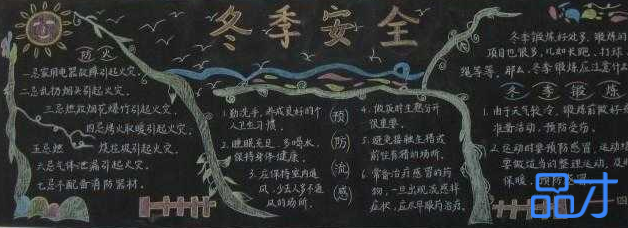 冬季安全
防火
一忌家用电器故障引起火灾.
二忌乱扔烟头引起火灾.
三忌燃放烟花爆竹引起火灾.
四忌烤火取暖引起火灾.
五忌燃 烧垃圾引起火灾.
六忌气体泄漏引起火灾.
七忌不配备消防器材.
预防流感
1.勤洗手,养成良好的个
人卫生习惯.
2.睡眠充足,多喝水,
保持身体健康.
3.应保持室内通
风,少去人多不通
风的场所.
4.做饭时生熟分开
很重要.
5.避免接触生猪或
前往有猪的场所.
6.常备治疗感冒的药
物,一旦出现流感样
症状,应尽早服药治疗.
冬季锻炼好处多,锻炼的
项目也很多,比如长跑、打球、
绳等等.那么,冬季锻炼应注意什
冬季锻炼
1.由于天气较冷,锻炼前做好
准备活动,预防受伤.
2.运动时要预防感冒,运动
要做适当的整理运动,及
保暖,预防感冒
品才